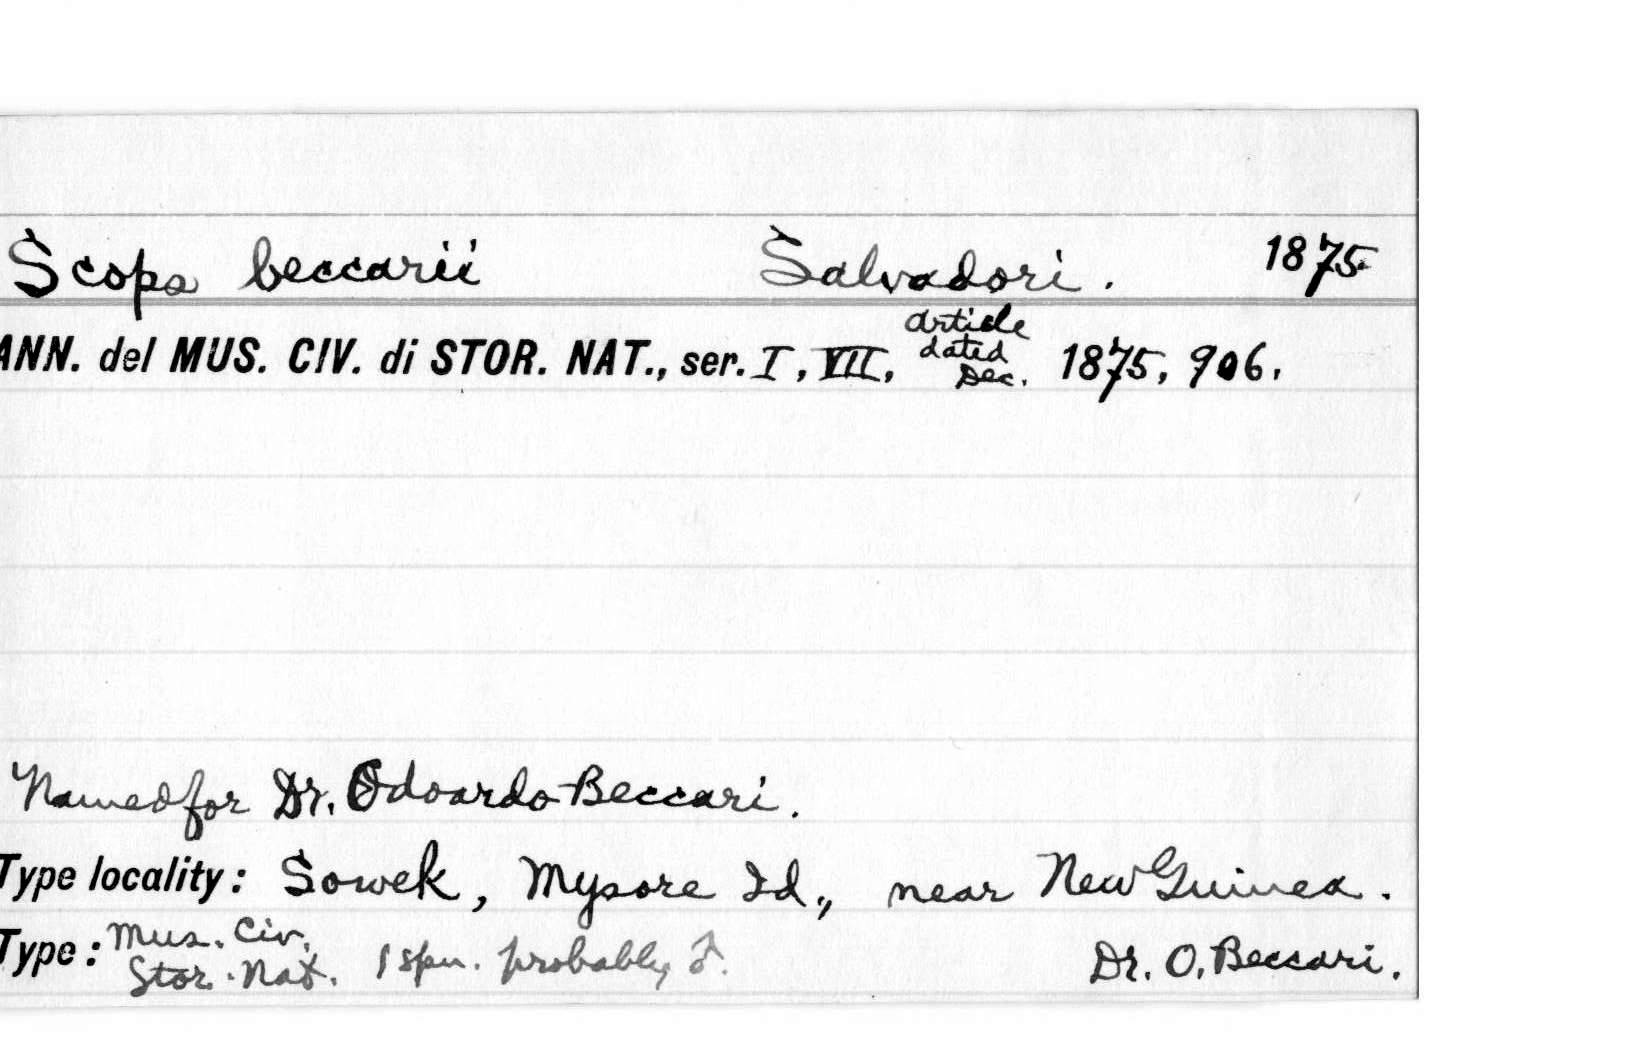 Scops beccarii Salvadori. 1875
ANN. del MUS. CIV. di STOR. NAT., ser. I, VII, article dated Dec. 1875, 906.
Named for Dr. Odoardo Beccari.
Type locality: Sowek, Mysore Id., near New Guinea.
Type: Mus. Civ. Stor. Nat. 1 spn. probably ♂. Dr. O. Beccari.